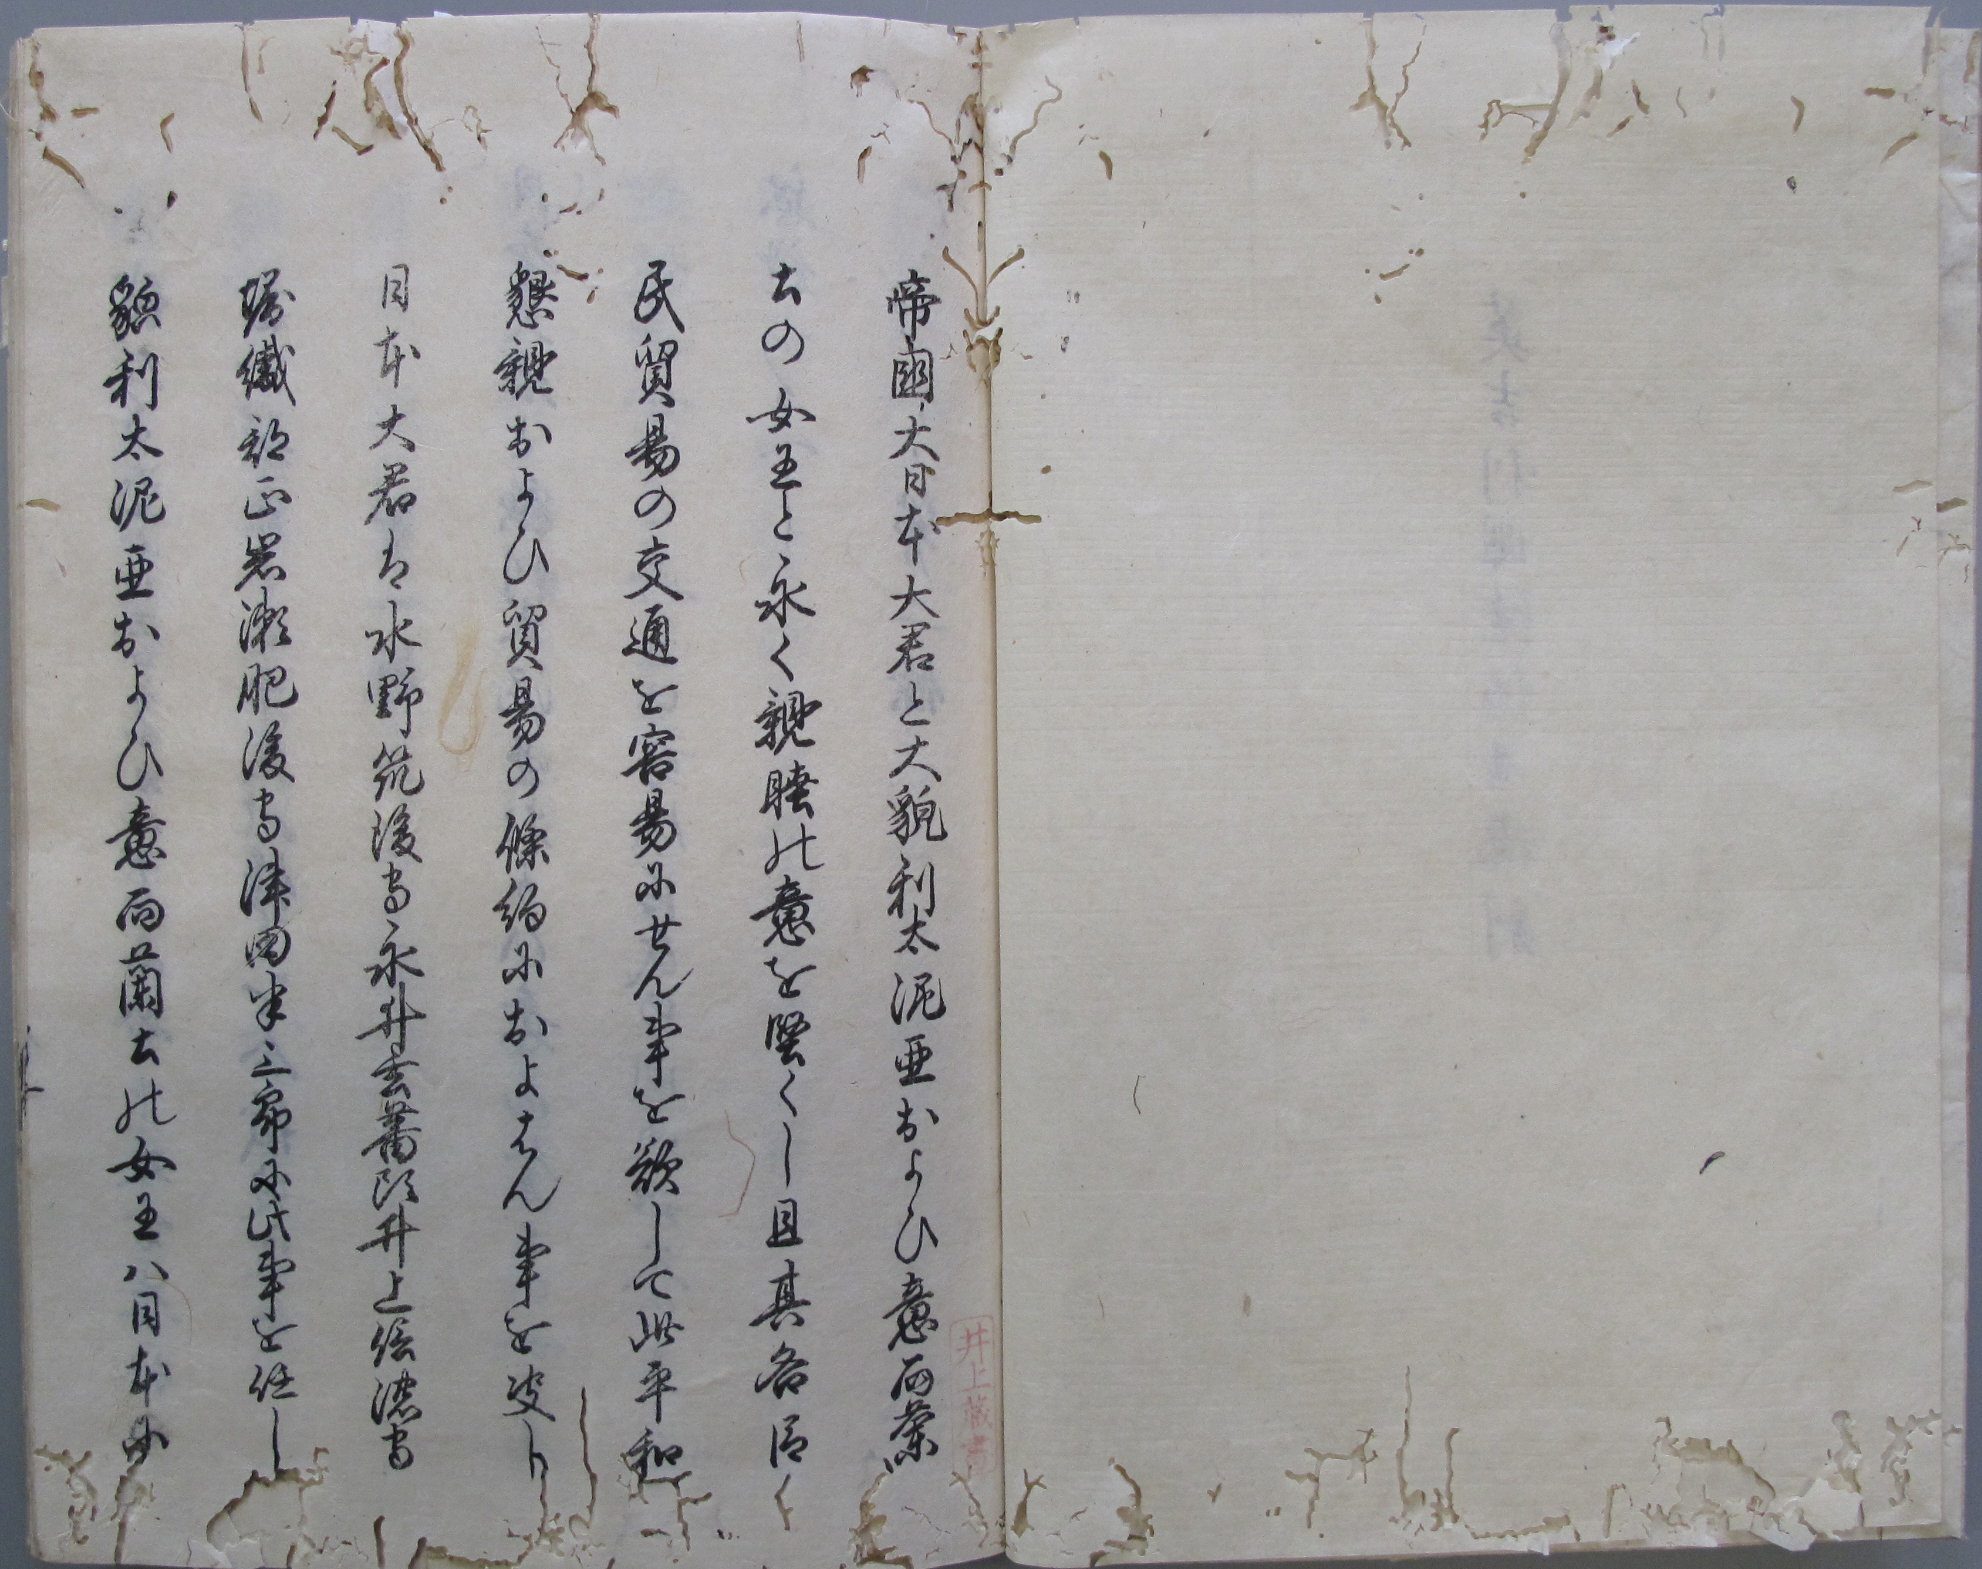 帝國大日本大君と大貌利太泥亜およひ意而蘭
土の女王と永く親睦の意を堅くし且其各臣
民貿易の交通を容易にせん事を欲して此平和
懇親およひ貿易の條約におよはん事を决し
日本大君は水野筑後守永井玄蕃頭井上信濃守
堀織部正岩瀬肥後守津田半三郎に此事を任し
貌利太泥亜およひ意而蘭土の女王ハ日本に
井上蔵書